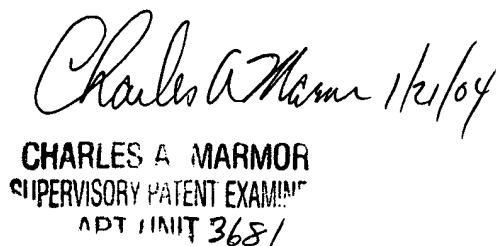 Charles A Marmor 1/21/04
CHARLES A MARMOR
SUPERVISORY PATENT EXAMINE
ART UNIT 3681